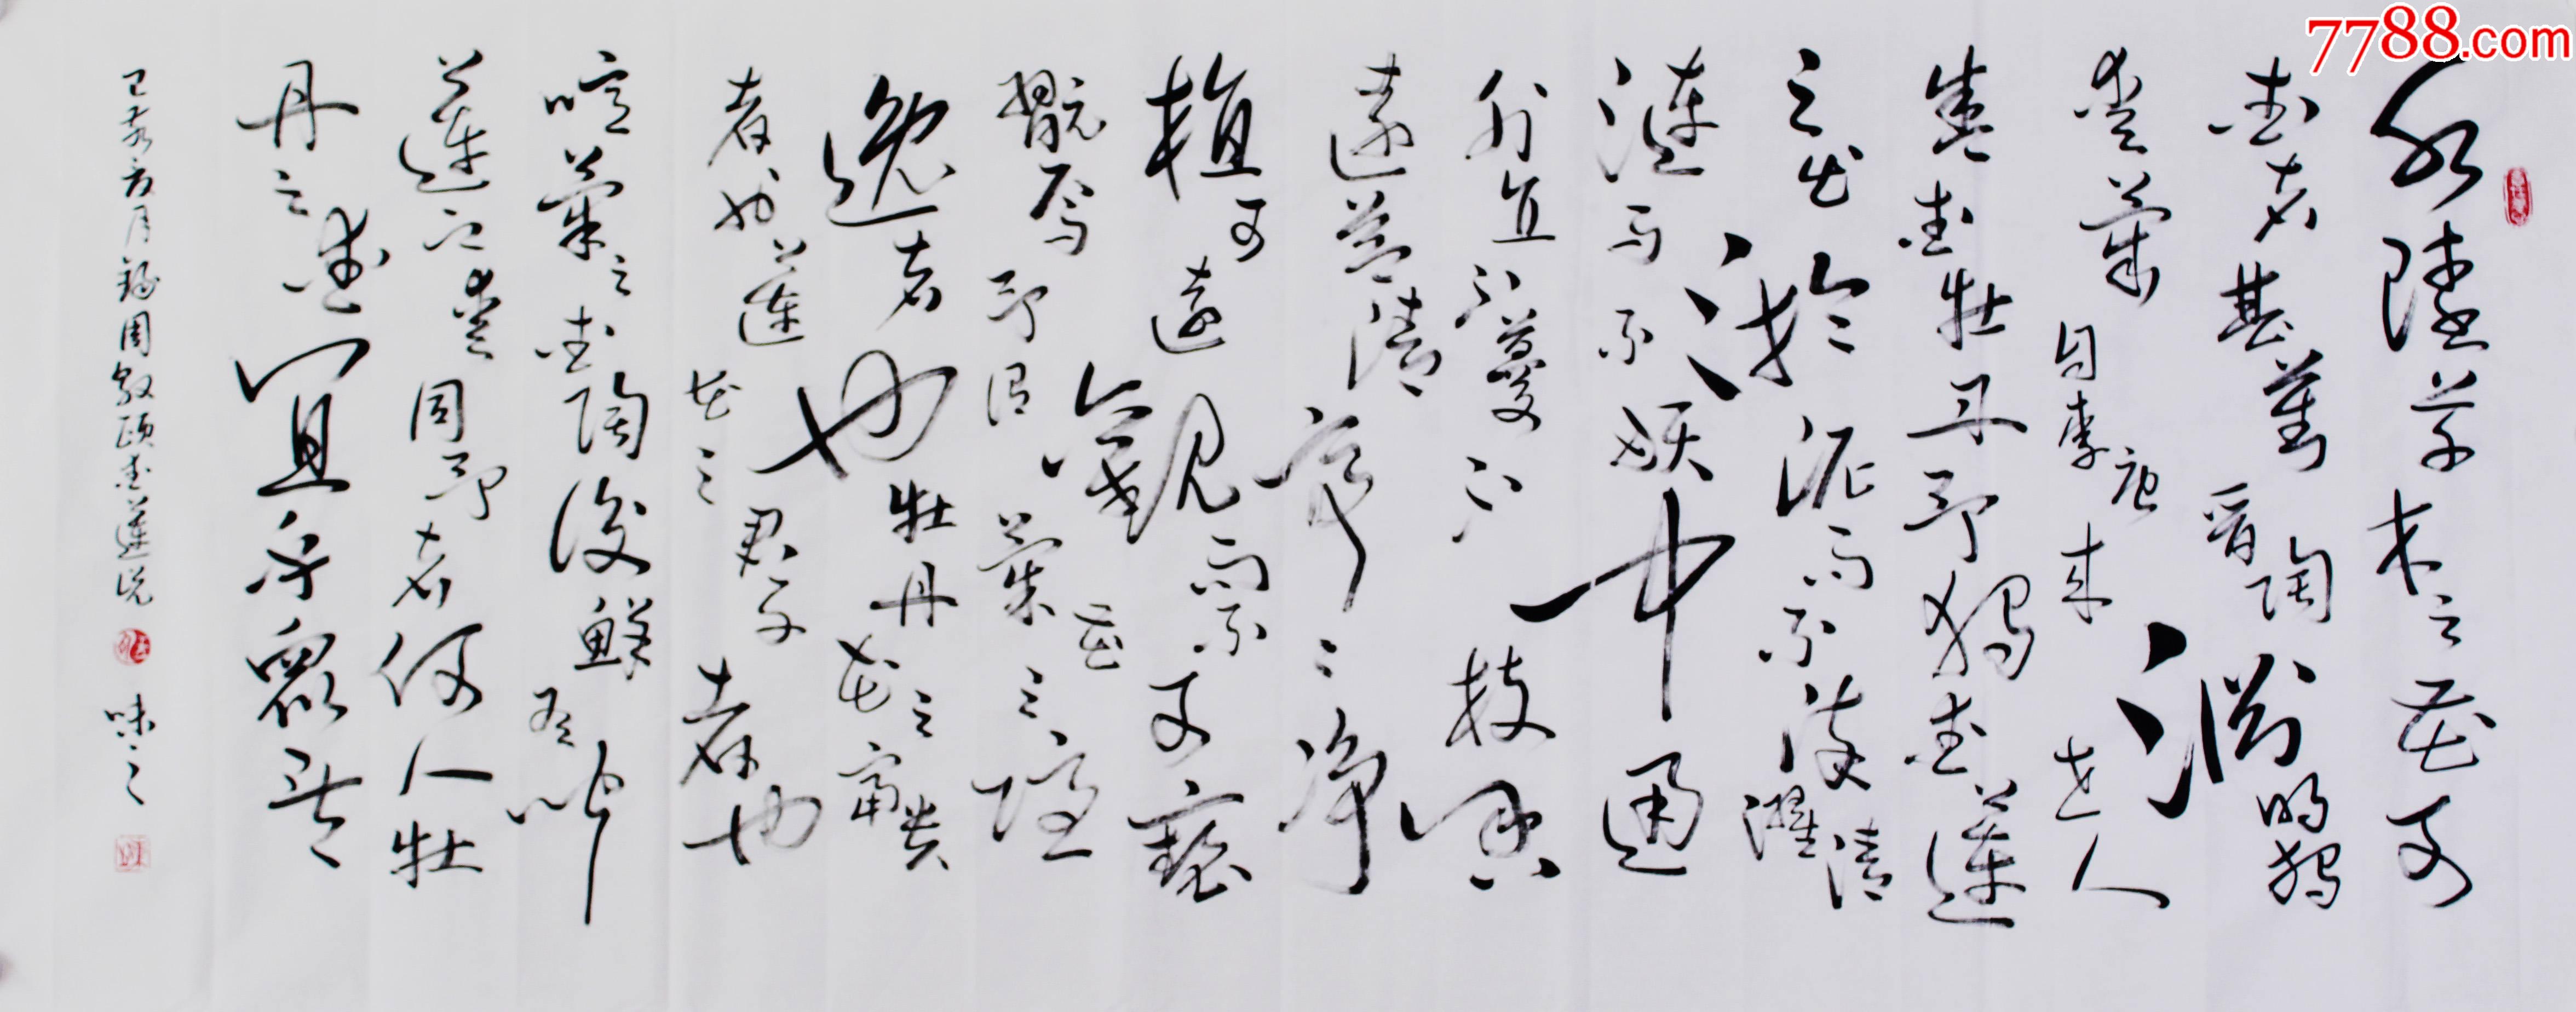 7788.com
水陸草木之花可
愛者甚蕃晉陶淵明獨
愛菊自李唐来世人
盛愛牡丹予獨愛蓮
之出淤泥而不染濯清
漣而不妖中通
外直不蔓不枝香
遠益清亭亭淨
植可遠觀而不可褻
翫焉予謂菊花之隱
逸者也牡丹花之富貴
者也蓮花之君子者也
噫菊之愛陶後鮮有聞
蓮之愛同予者何人牡
丹之愛宜乎眾矣
己亥 月錄周敦頤愛蓮説